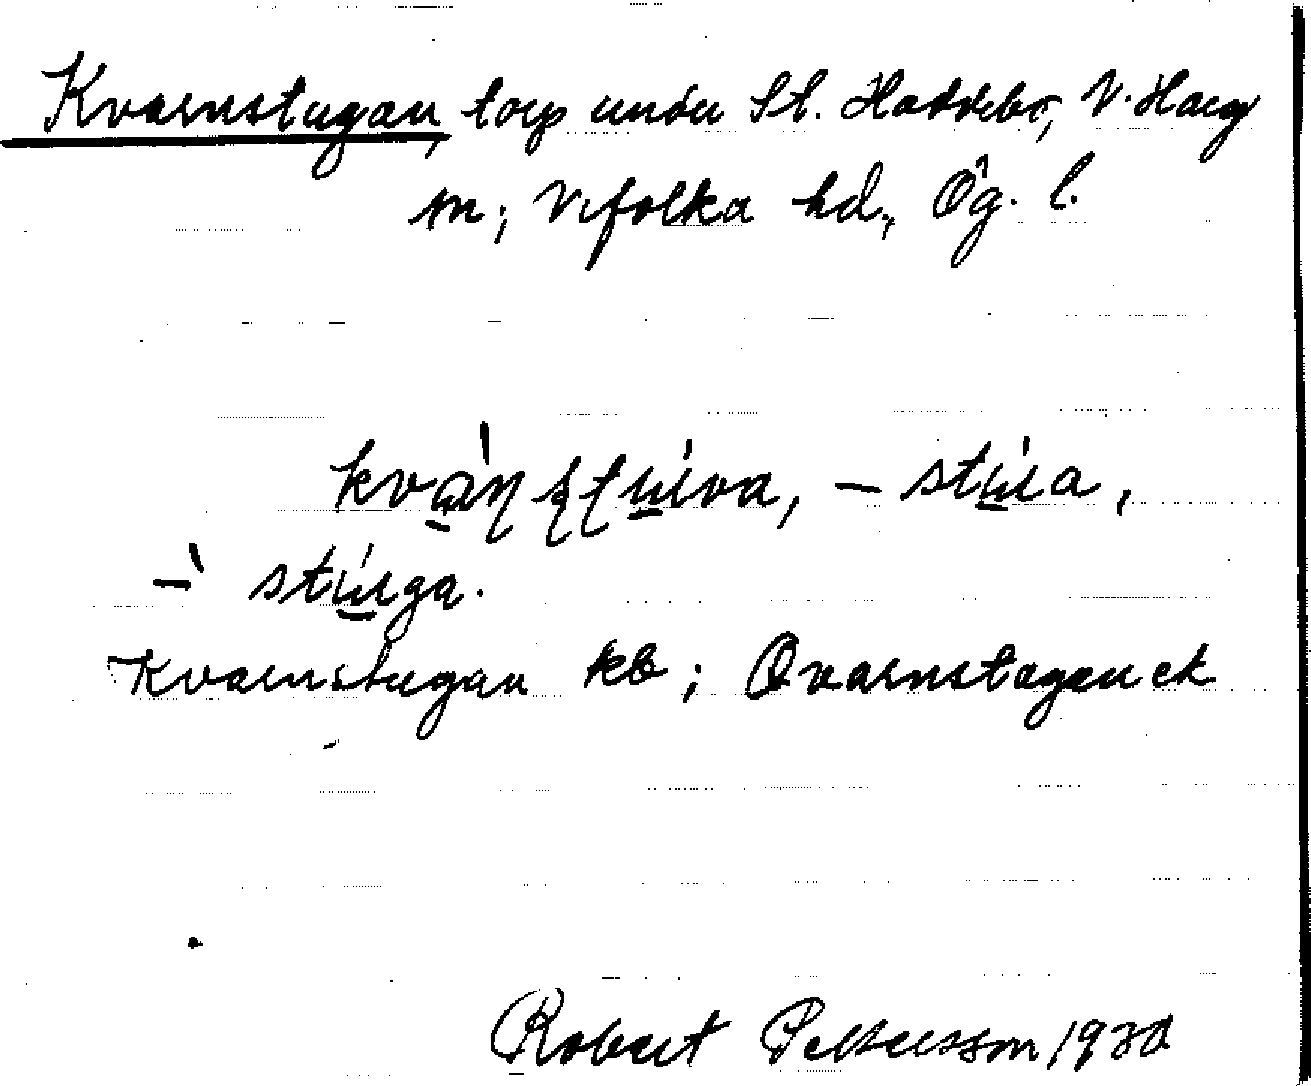 Kvarnstugan, torp under St. Haddebo, V. Harg
sn; Vifolka hd., Ög. l.
kvàɳʂʈúva, – stúa,
– stúga.
Kvarnstugan kb; Qvarnstugan ek
Robert Pettersson 1930